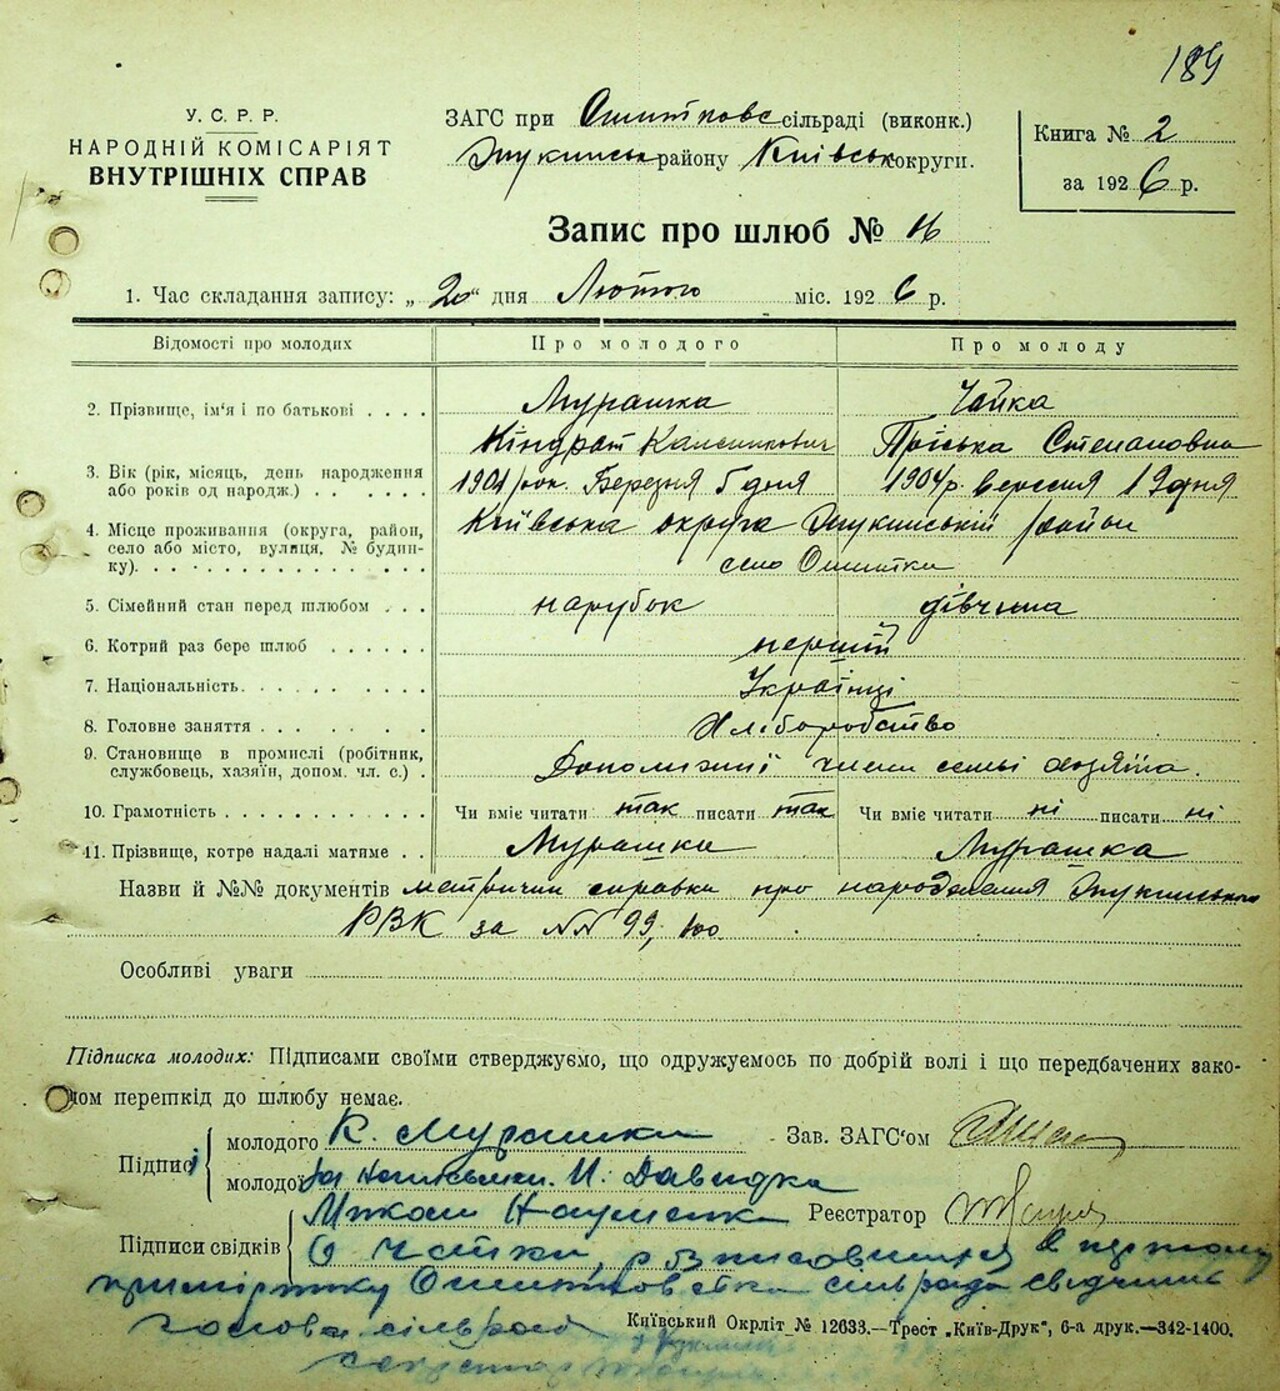 189
У. С. Р. Р.
НАРОДНІЙ КОМІСАРІЯТ
ВНУТРІШНІХ СПРАВ
ЗАГС при Ошитковс сільраді (виконк.)
Жукинськ району Київськ округи.
Книга № 2
за 1926 р.
Запис про шлюб № 16
1. Час складання запису: „20" дня Лютого міс. 1926 р.
Відомості про молодих Про молодого Про молоду
2. Прізвище, ім'я і по батькові . . . . Мурашка Чайка
Кіндрат Каленикович Пріська Степановна
3. Вік (рік, місяць, день народження або років од народж.) . . . . . . 1901 рок. Березня 5 дня 1904 р. вересня 19 дня
4. Місце проживання (округа, район, село або місто, вулиця, № будинку). Київська округа Жукинський район
село Ошитки
5. Сімейний стан перед шлюбом . . . парубок дівчина
6. Котрий раз бере шлюб . . . . . . перший
7. Національність. . . . . . . . . . Українці
8. Головне заняття . . . . . . . . . Хліборобство
9. Становище в промислі (робітник, службовець, хазяїн, допом. чл. с.) . Допомізні члени семьі хазяїна.
10. Грамотність . . . . . . . . . . . Чи вміє читати так писати так Чи вміє читати ні писати ні
11. Прізвище, котре надалі матиме . . Мурашка Мурашка
Назви й №№ документів метричні справки про народження Жукинського
РВК за NN 99, 100.
Особливі уваги
Підписка молодих: Підписами своїми стверджуємо, що одружуємось по добрій волі і що передбачених зако-
ном перешкід до шлюбу немає.
Підписі молодого К. Мурашка Зав. ЗАГС'ом
молодої за неписьмен. И. Давидка
Підписи свідків Микола Науменка Реєстратор
О Чайки, розписовишися в першому
примірнику Ошитковська сільрада свідчить
голова сільради
секретар
Київський Окрліт № 12633.—Трест „Київ-Друк", 6-а друк.—342-1400.